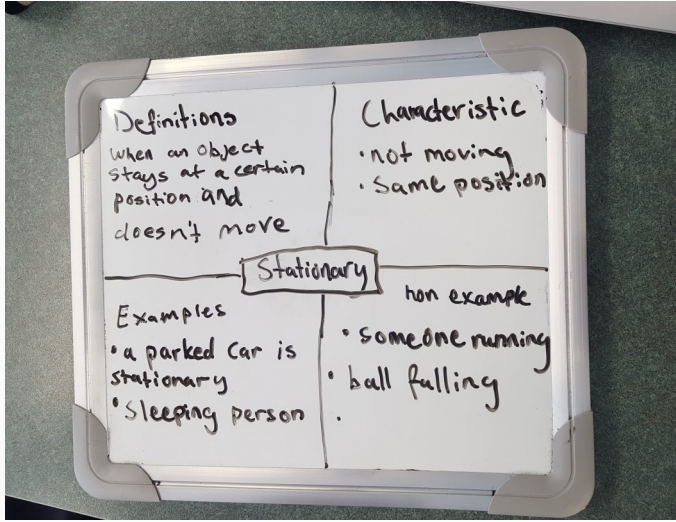 Definitions
when an object
stays at a certain
position and
doesn't move
Characteristic
• not moving
• same position
Stationary
Examples
• a parked car is
stationary
• Sleeping person
non example
• someone running
• ball falling
•